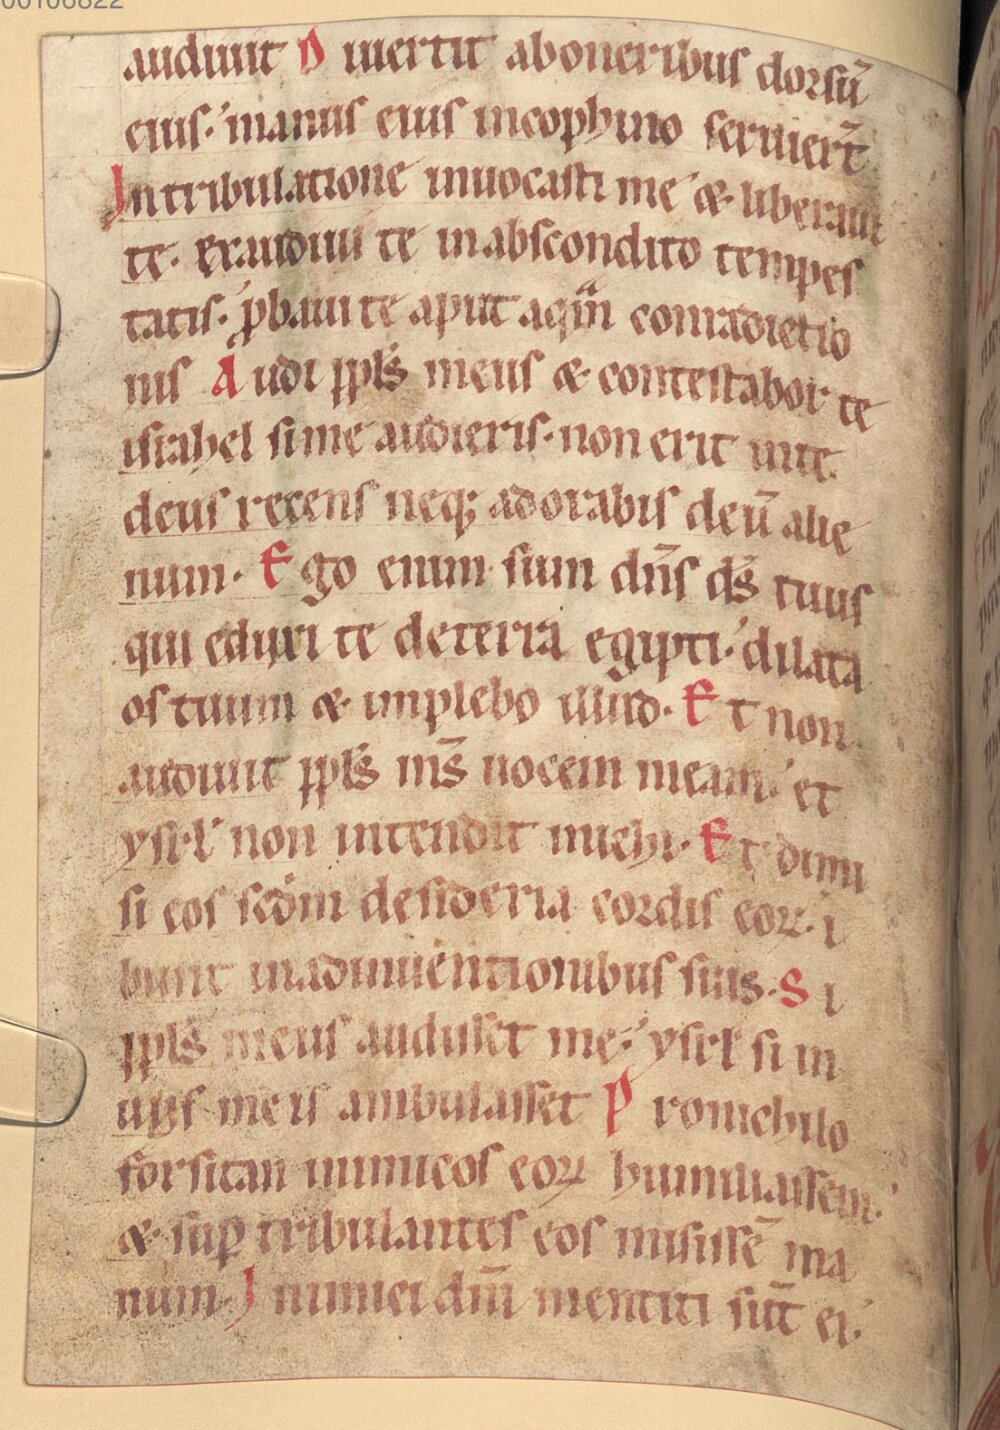 00106822
audiuit D iuertit aboneribus dorsū
eius. manus eius incophino seruier̄t
Intribulatione inuocasti me & liberaui
te. exaudiui te inabscondito tempes
tatis. ꝓbaui te aput aqm̄ contradictio
nis Audi ppl̄s meus & contestabor te
israhel sime audieris. non erit inte
deus recens neq; adorabis deū alie
num. E go enim sum dn̄s ds̄ tuus
qui eduxi te deterra egipti. dilata
os tuum & implebo illud. E t non
audiuit ppl̄s ms̄ uocem meam. et
ysrl̄ non intendit michi. E t dimi
si eos scd̄m desideria cordis eoꝝ. i
bunt inadinuentionibus suis. S i
ppl̄s meus audisset me. ysrl̄ si in
uijs meis ambulasset P ronichilo
forsitan inimicos eoꝝ humiliassem.
& suꝑ tribulantes eos misissē ma
num. I nimici dn̄i mentiti sūt ei.